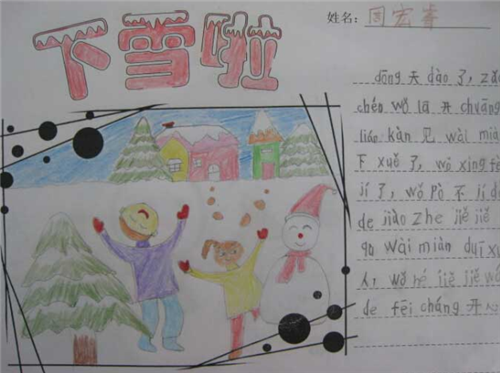 下雪啦
姓名：周宏春
dōng天dào了，zǎo
chén wǒ lā开chuāng
lián kàn见wài miàn
下xuě了，wǒ xīng fèn
jí了，wǒ pò不jí dài
de jiào zhe jiě jiě
qù wài miàn duī xuě
人，wǒ hé jiě jiě wán
de fēi cháng开心